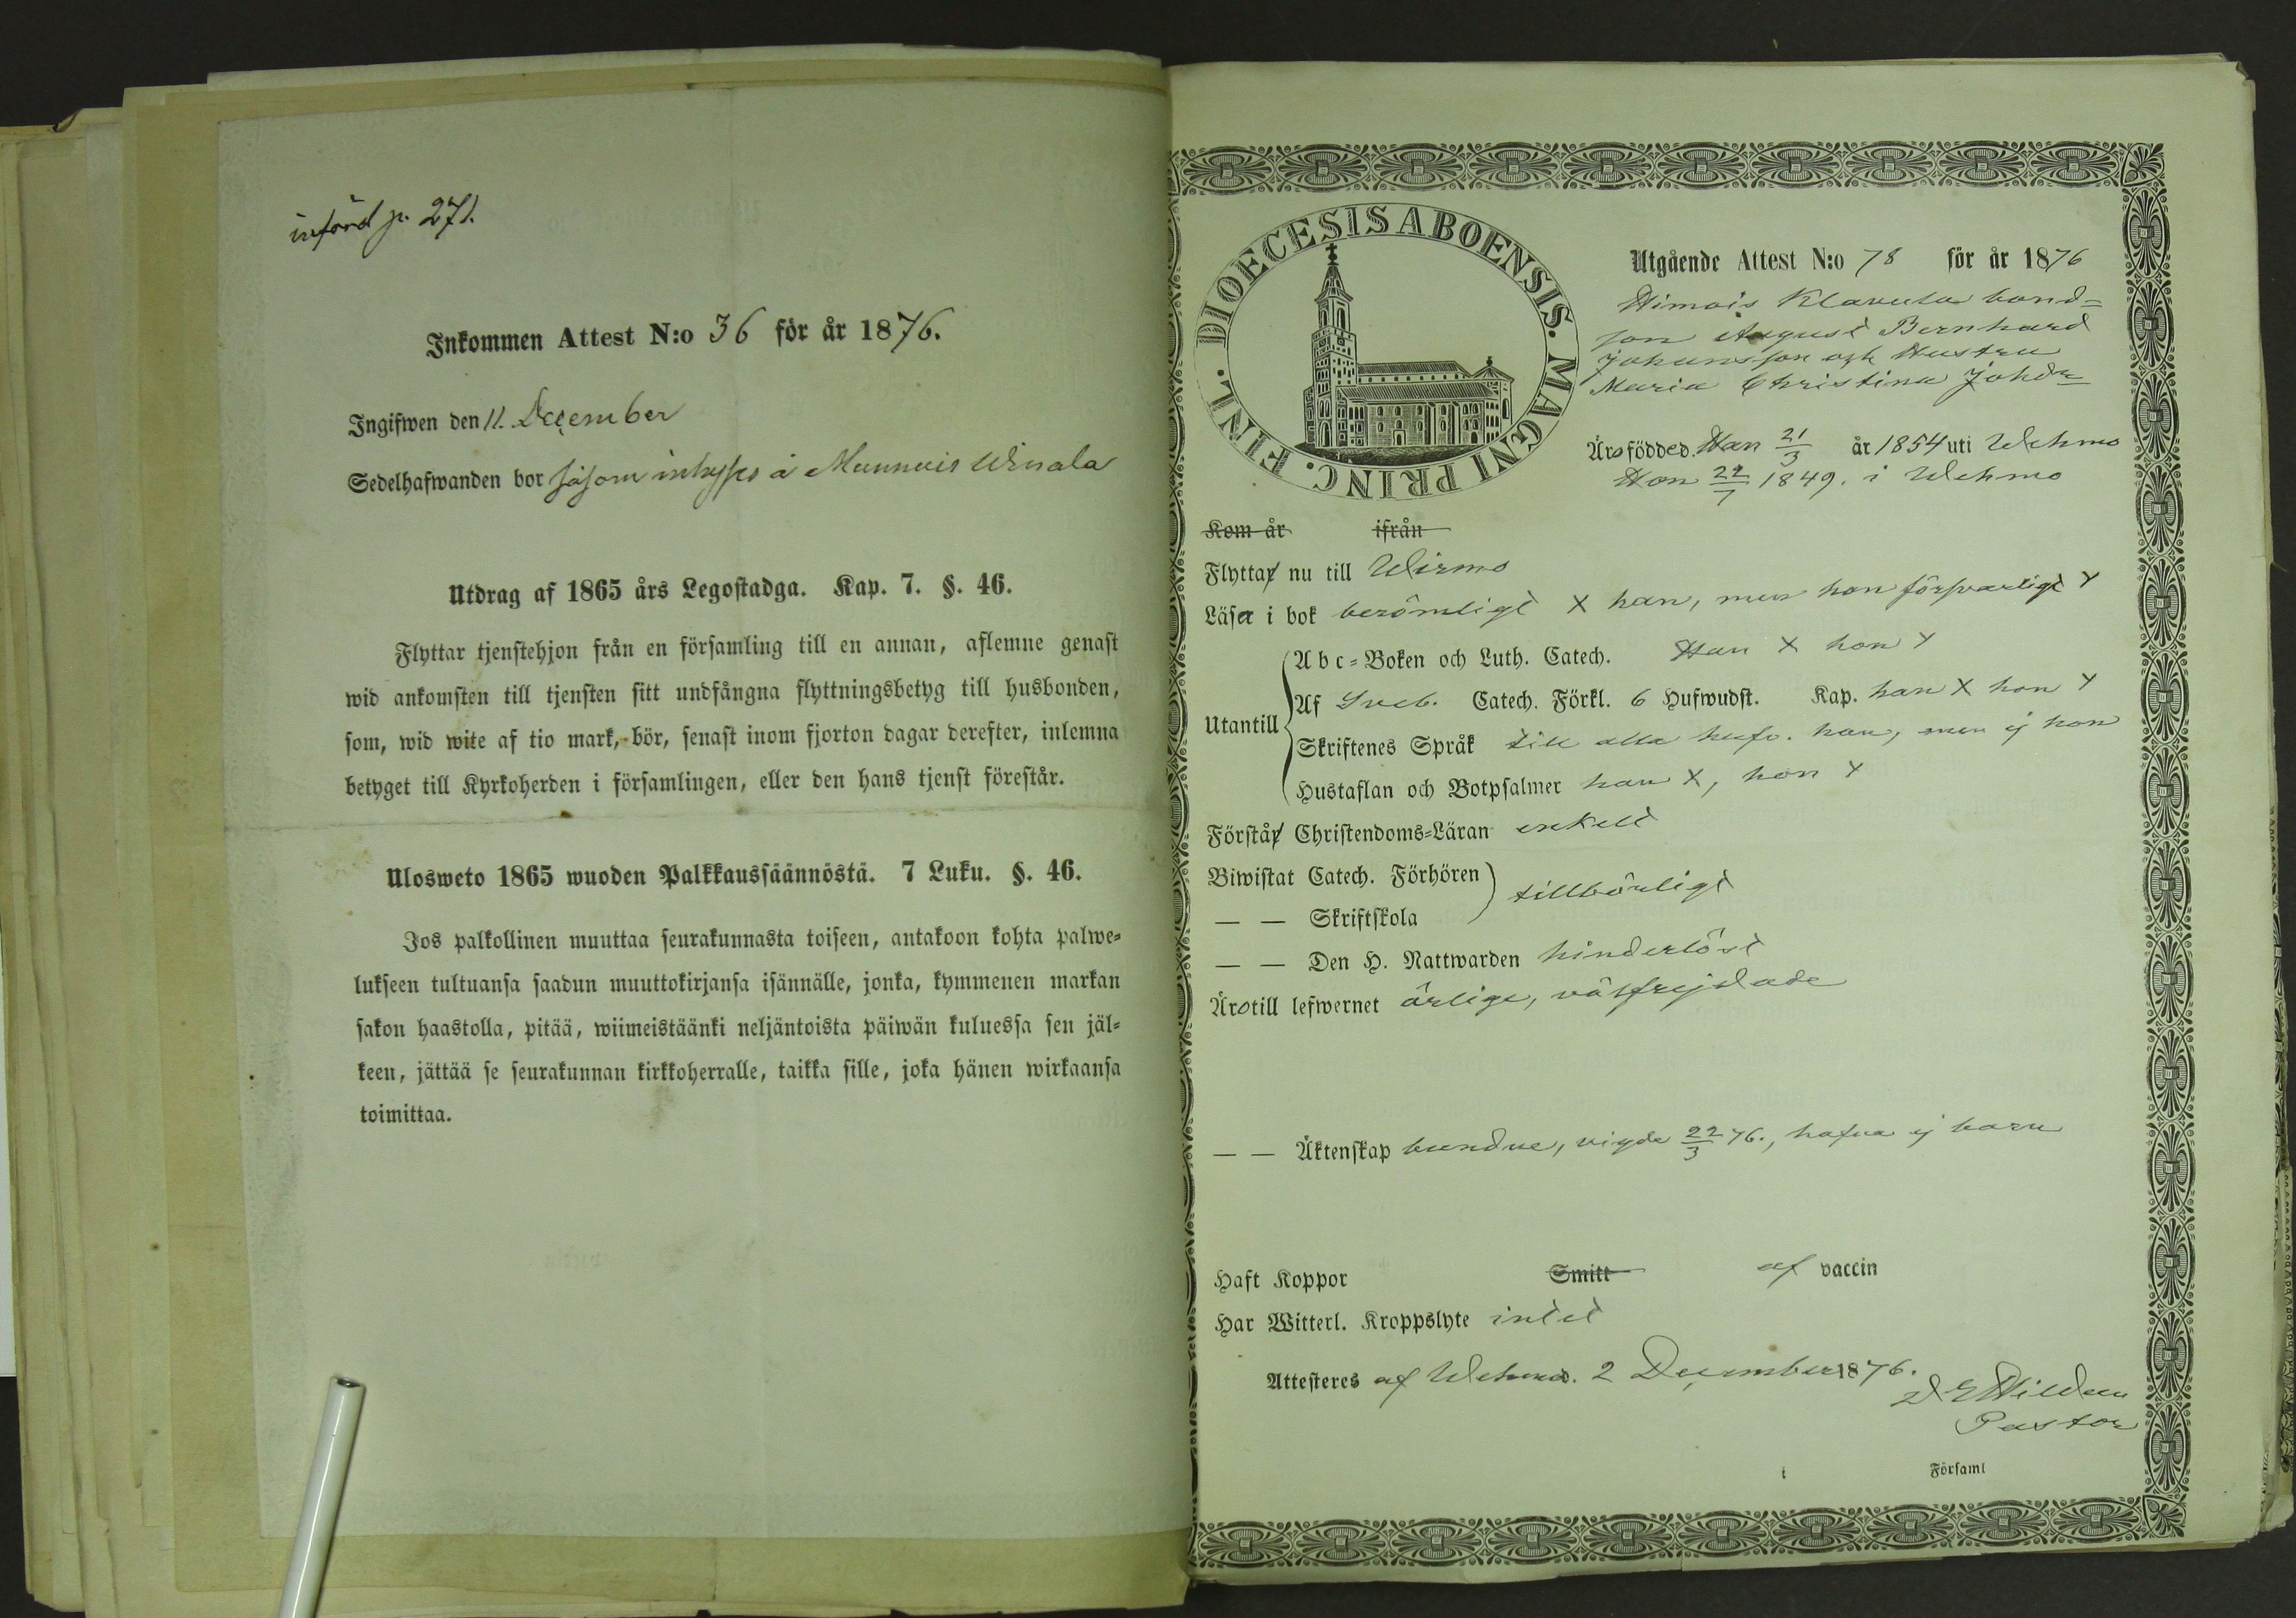 införd p. 271.
Inkommen Attest N:o 36 för år 1876.
Ingifwen den 11. December
Sedelhafwanden bor såsom inhyses å Munnais Winala
Utdrag af 1865 års Legostadga. Kap. 7. §. 46.
Flyttar tjenstehjon från en församling till en annan, aflemne genast
wid ankomsten till tjensten sitt undfångna flyttningsbetyg till husbonden,
som, wid wite af tio mark, bör, senast inom fjorton dagar derefter, inlemna
betyget till Kyrkoherden i församlingen, eller den hans tjenst förestår.
Ulosweto 1865 wuoden Palkkaussäännöstä. 7 Luku. §. 46.
Jos palkollinen muuttaa seurakunnasta toiseen, antakoon kohta palwe-
lukseen tultuansa saadun muuttokirjansa isännälle, jonka, kymmenen markan
sakon haastolla, pitää, wiimeistäänki neljäntoista päiwän kuluessa sen jäl-
keen, jättää se seurakunnan kirkkoherralle, taikka sille, joka hänen wirkaansa
toimittaa.
DIOECESIS ABOENSIS. MAGNI PRINC. FINL.
Utgående Attest N:o 78 för år 1876
Himois Klavula bond-
son August Bernhard
Johansson och Hustru
Maria Christina Johdr
Äro födde d. Han 21/3 år 1854 uti Wehmo
Hon 22/7 1849. i Wehmo
Kom år ifrån
Flytta nu till Wirmo
Läsa i bok berömligt x han, men hon försvarligt y
Abc-Boken och Luth. Catech. Han x hon y
Utantill Af Sveb. Catech. Förkl. 6 Hufwudst. Kap. han x hon y
Skriftenes Språk till alla hufv. han, men ej hon
Hustaflan och Botpsalmer han x, hon y
Förstå Christendoms-Läran enkelt
Biwistat Catech. Förhören
— — Skriftskola tillbörligt
— — Den H. Nattwarden hinderlöst
Äro till lefwernet ärlige, välfrejdade
— — Äktenskap bundne, vigde 22/3 76., hafva ej barn
Haft Koppor Smitt af vaccin
Har Witterl. Kroppslyte intet
Attesteres af Wehmo d. 2 December 1876.
Pastor
i Församl